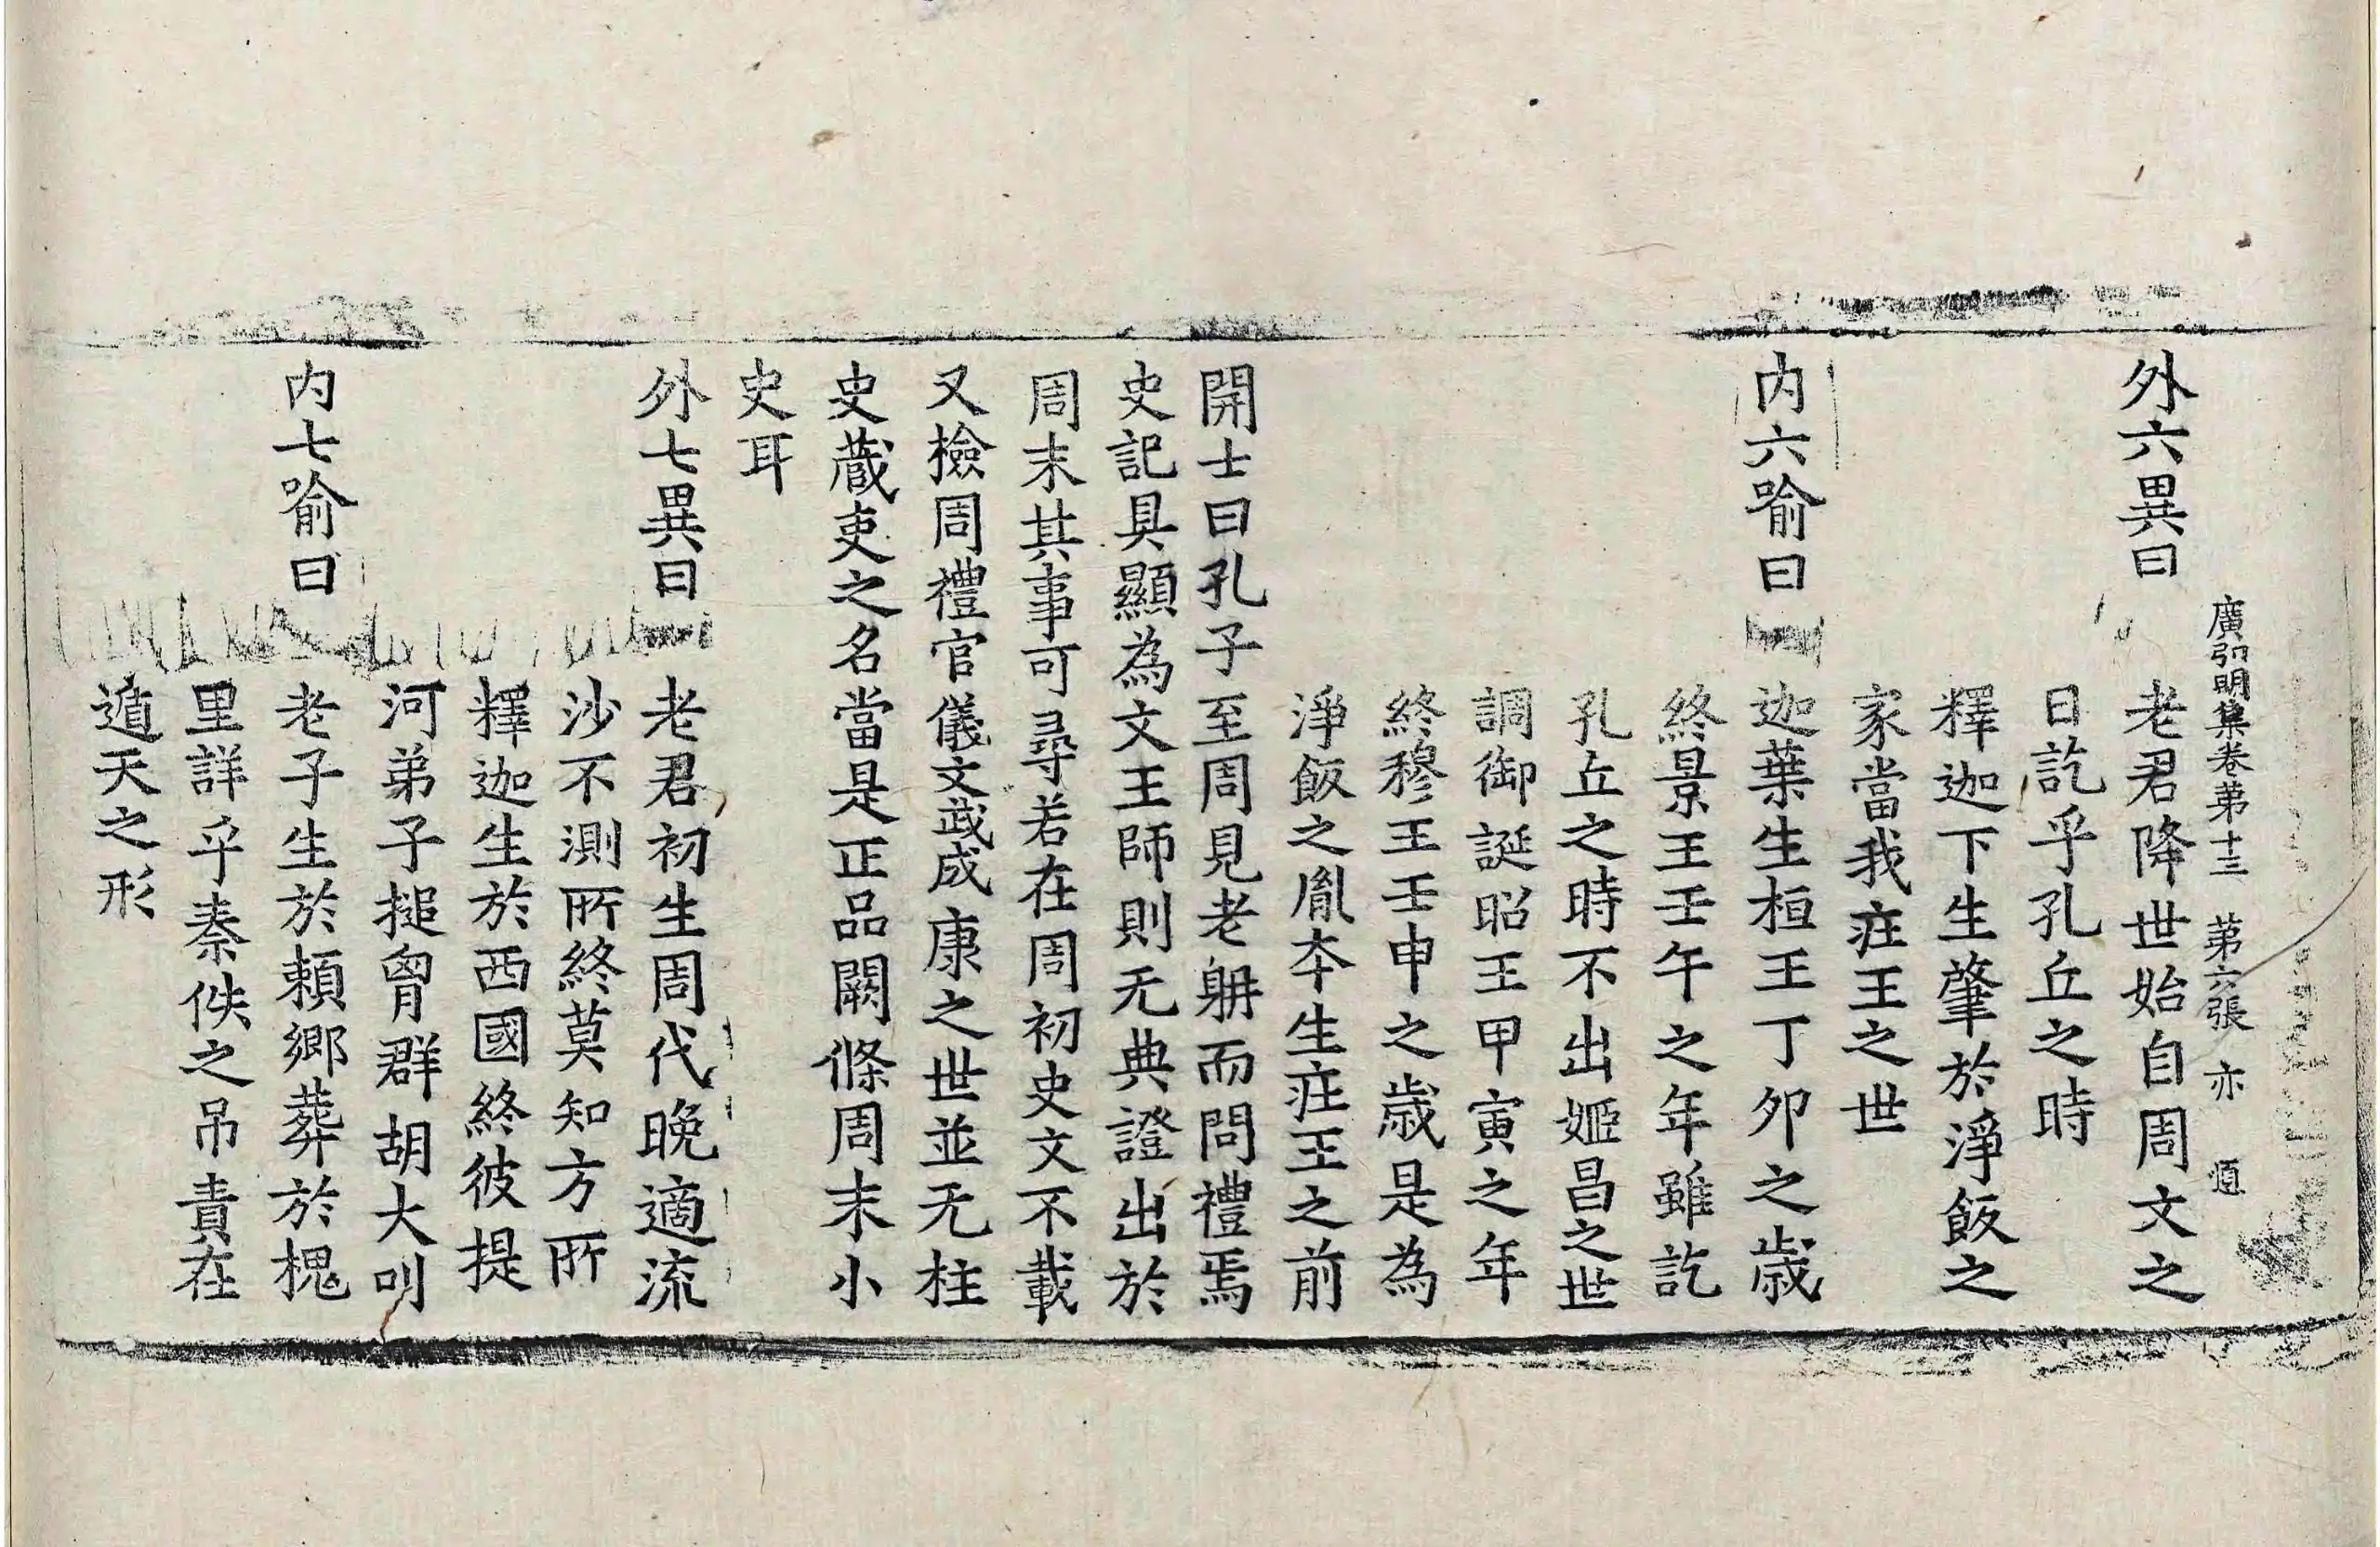 廣弘明集卷苐十三 苐六張 亦 㥀
外六異曰 老君降世始自周文之
日訖乎孔丘之時
釋迦下生肇於淨飯之
家當我㽵王之世
内六喻曰 迦葉生桓王丁夘之歳
終景王壬午之年雖訖
孔丘之時不出姬昌之世
調御誕昭王甲寅之年
終穆王壬申之歳是為
淨飯之胤夲生㽵王之前
開士曰孔子至周見老𨈭而問禮焉
史記具顯為文王師則无典證出於
周末其事可尋若在周初史文不載
又撿周禮官儀文武成康之世並无柱
史蔵吏之名當是正品闕條周末小
史耳
外七異曰 老君初生周代晚適流
沙不測所終莫知方所
釋迦生於西國終彼提
河弟子搥胷群胡大叫
内七喻曰 老子生於賴鄉葬於槐
里詳乎秦佚之吊責在
遁天之形